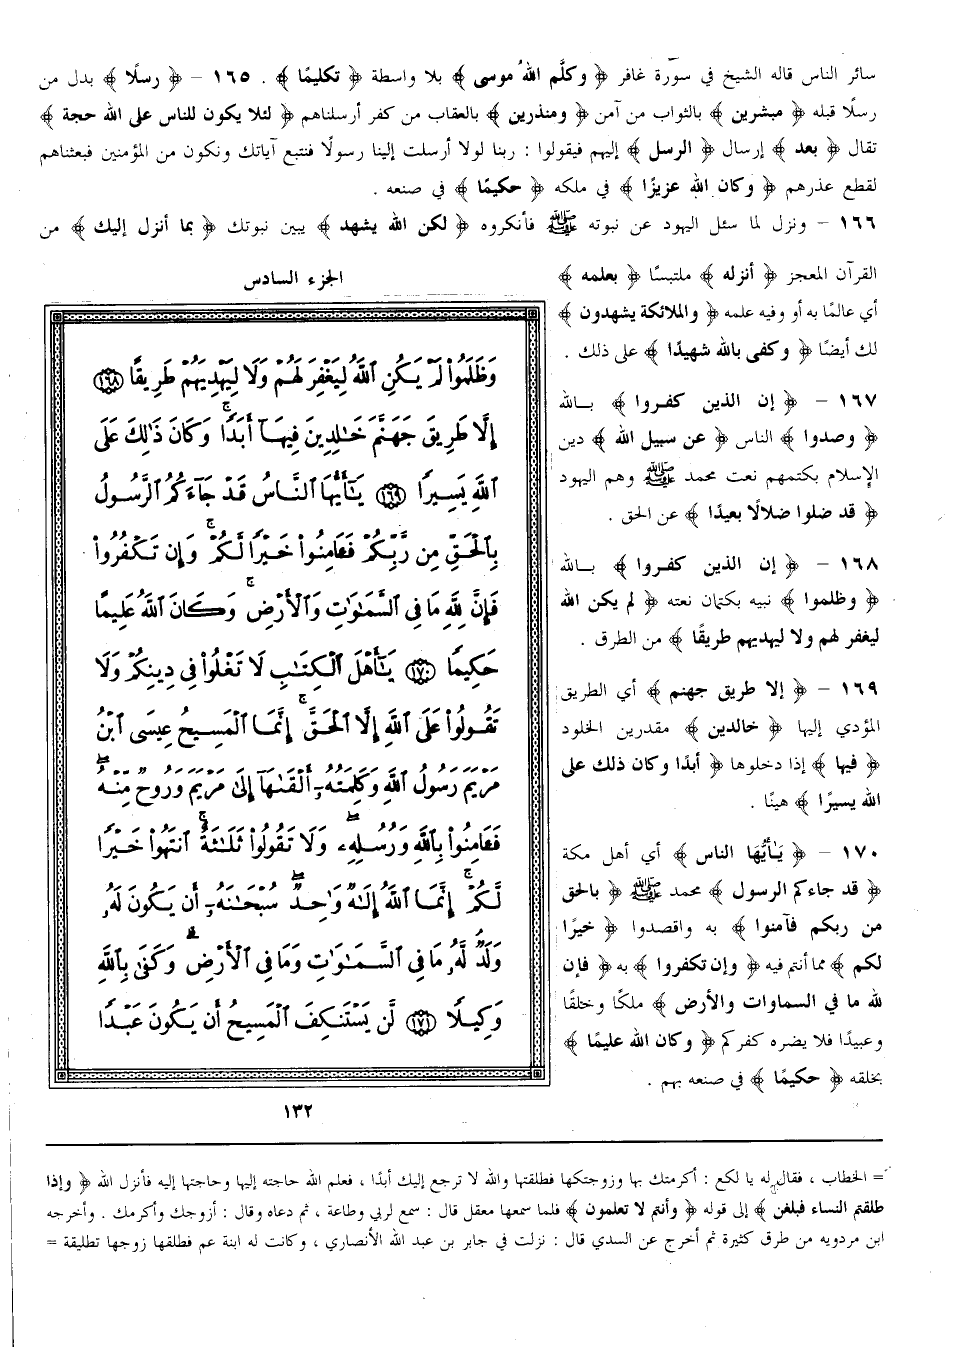 سائر الناس قاله الشيخ في سورة غافر ﴿ وكلَّم اللهُ موسى ﴾ بلا واسطة ﴿ تكليمًا ﴾ . ١٦٥ – ﴿ رسلًا ﴾ بدل من
رسلًا قبله ﴿ مبشرين ﴾ بالثواب من آمن ﴿ ومنذرين ﴾ بالعقاب من كفر أرسلناهم ﴿ لئلا يكون للناس على الله حجة ﴾
تقال ﴿ بعد ﴾ إرسال ﴿ الرسل ﴾ إليهم فيقولوا : ربنا لولا أرسلت إلينا رسولًا فنتبع آياتك ونكون من المؤمنين فبعثناهم
لقطع عذرهم ﴿ وكان الله عزيزًا ﴾ في ملكه ﴿ حكيمًا ﴾ في صنعه .
١٦٦ – ونزل لما سئل اليهود عن نبوته ﷺ فأنكروه ﴿ لكن الله يشهد ﴾ يبين نبوتك ﴿ بما أنزل إليك ﴾ من
القرآن المعجز ﴿ أنزله ﴾ ملتبسًا ﴿ بعلمه ﴾
أي عالمًا به أو وفيه علمه ﴿ والملائكة يشهدون ﴾
لك أيضًا ﴿ وكفى بالله شهيدًا ﴾ على ذلك .
١٦٧ – ﴿ إن الذين كفروا ﴾ بـالله
﴿ وصدوا ﴾ الناس ﴿ عن سبيل الله ﴾ دين
الإسلام بكتمهم نعت محمد ﷺ وهم اليهود
﴿ قد ضلوا ضلالًا بعيدًا ﴾ عن الحق .
١٦٨ – ﴿ إن الذين كفروا ﴾ بـالله
﴿ وظلموا ﴾ نبيه بكتمان نعته ﴿ لم يكن الله
ليغفر لهم ولا ليهديهم طريقًا ﴾ من الطرق .
١٦٩ – ﴿ إلا طريق جهنم ﴾ أي الطريق
المؤدي إليها ﴿ خالدين ﴾ مقدرين الخلود
﴿ فيها ﴾ إذا دخلوها ﴿ أبدًا وكان ذلك على
الله يسيرًا ﴾ هينًا .
١٧٠ – ﴿ يَٰأَيُّهَا الناس ﴾ أي أهل مكة
﴿ قد جاءكم الرسول ﴾ محمد ﷺ ﴿ بالحق
من ربكم فآمنوا ﴾ به واقصدوا ﴿ خيرًا
لكم ﴾ مما أنتم فيه ﴿ وإن تكفروا ﴾ به ﴿ فإن
لله ما في السماوات والأرض ﴾ ملكًا وخلقًا
وعبيدًا فلا يضره كفركم ﴿ وكان الله عليمًا ﴾
بخلقه ﴿ حكيمًا ﴾ في صنعه بهم .
الجزء السادس
وَظَلَمُوا۟ لَمْ يَكُنِ ٱللَّهُ لِيَغْفِرَ لَهُمْ وَلَا لِيَهْدِيَهُمْ طَرِيقًا ١٦٨
إِلَّا طَرِيقَ جَهَنَّمَ خَٰلِدِينَ فِيهَآ أَبَدًا ۚ وَكَانَ ذَٰلِكَ عَلَى
ٱللَّهِ يَسِيرًا ١٦٩ يَٰٓأَيُّهَا ٱلنَّاسُ قَدْ جَآءَكُمُ ٱلرَّسُولُ
بِٱلْحَقِّ مِن رَّبِّكُمْ فَـَٔامِنُوا۟ خَيْرًا لَّكُمْ ۚ وَإِن تَكْفُرُوا۟
فَإِنَّ لِلَّهِ مَا فِى ٱلسَّمَٰوَٰتِ وَٱلْأَرْضِ ۚ وَكَانَ ٱللَّهُ عَلِيمًا
حَكِيمًا ١٧٠ يَٰٓأَهْلَ ٱلْكِتَٰبِ لَا تَغْلُوا۟ فِى دِينِكُمْ وَلَا
تَقُولُوا۟ عَلَى ٱللَّهِ إِلَّا ٱلْحَقَّ ۚ إِنَّمَا ٱلْمَسِيحُ عِيسَى ٱبْنُ
مَرْيَمَ رَسُولُ ٱللَّهِ وَكَلِمَتُهُۥٓ أَلْقَىٰهَآ إِلَىٰ مَرْيَمَ وَرُوحٌ مِّنْهُ ۖ
فَـَٔامِنُوا۟ بِٱللَّهِ وَرُسُلِهِۦ ۖ وَلَا تَقُولُوا۟ ثَلَٰثَةٌ ۚ ٱنتَهُوا۟ خَيْرًا
لَّكُمْ ۚ إِنَّمَا ٱللَّهُ إِلَٰهٌ وَٰحِدٌ ۖ سُبْحَٰنَهُۥٓ أَن يَكُونَ لَهُۥ
وَلَدٌ ۘ لَّهُۥ مَا فِى ٱلسَّمَٰوَٰتِ وَمَا فِى ٱلْأَرْضِ ۗ وَكَفَىٰ بِٱللَّهِ
وَكِيلًا ١٧١ لَّن يَسْتَنكِفَ ٱلْمَسِيحُ أَن يَكُونَ عَبْدًا
١٣٢
= الخطاب ، فقال له يا لكع : أكرمتك بها وزوجتكها فطلقتها والله لا ترجع إليك أبدًا ، فعلم الله حاجته إليها وحاجتها إليه فأنزل الله ﴿ وإذا
طلقتم النساء فبلغن ﴾ إلى قوله ﴿ وأنتم لا تعلمون ﴾ فلما سمعها معقل قال : سمع لربي وطاعة ، ثم دعاه وقال : أزوجك وأكرمك . وأخرجه
ابن مردويه من طرق كثيرة ثم أخرج عن السدي قال : نزلت في جابر بن عبد الله الأنصاري ، وكانت له ابنة عم فطلقها زوجها تطليقة =